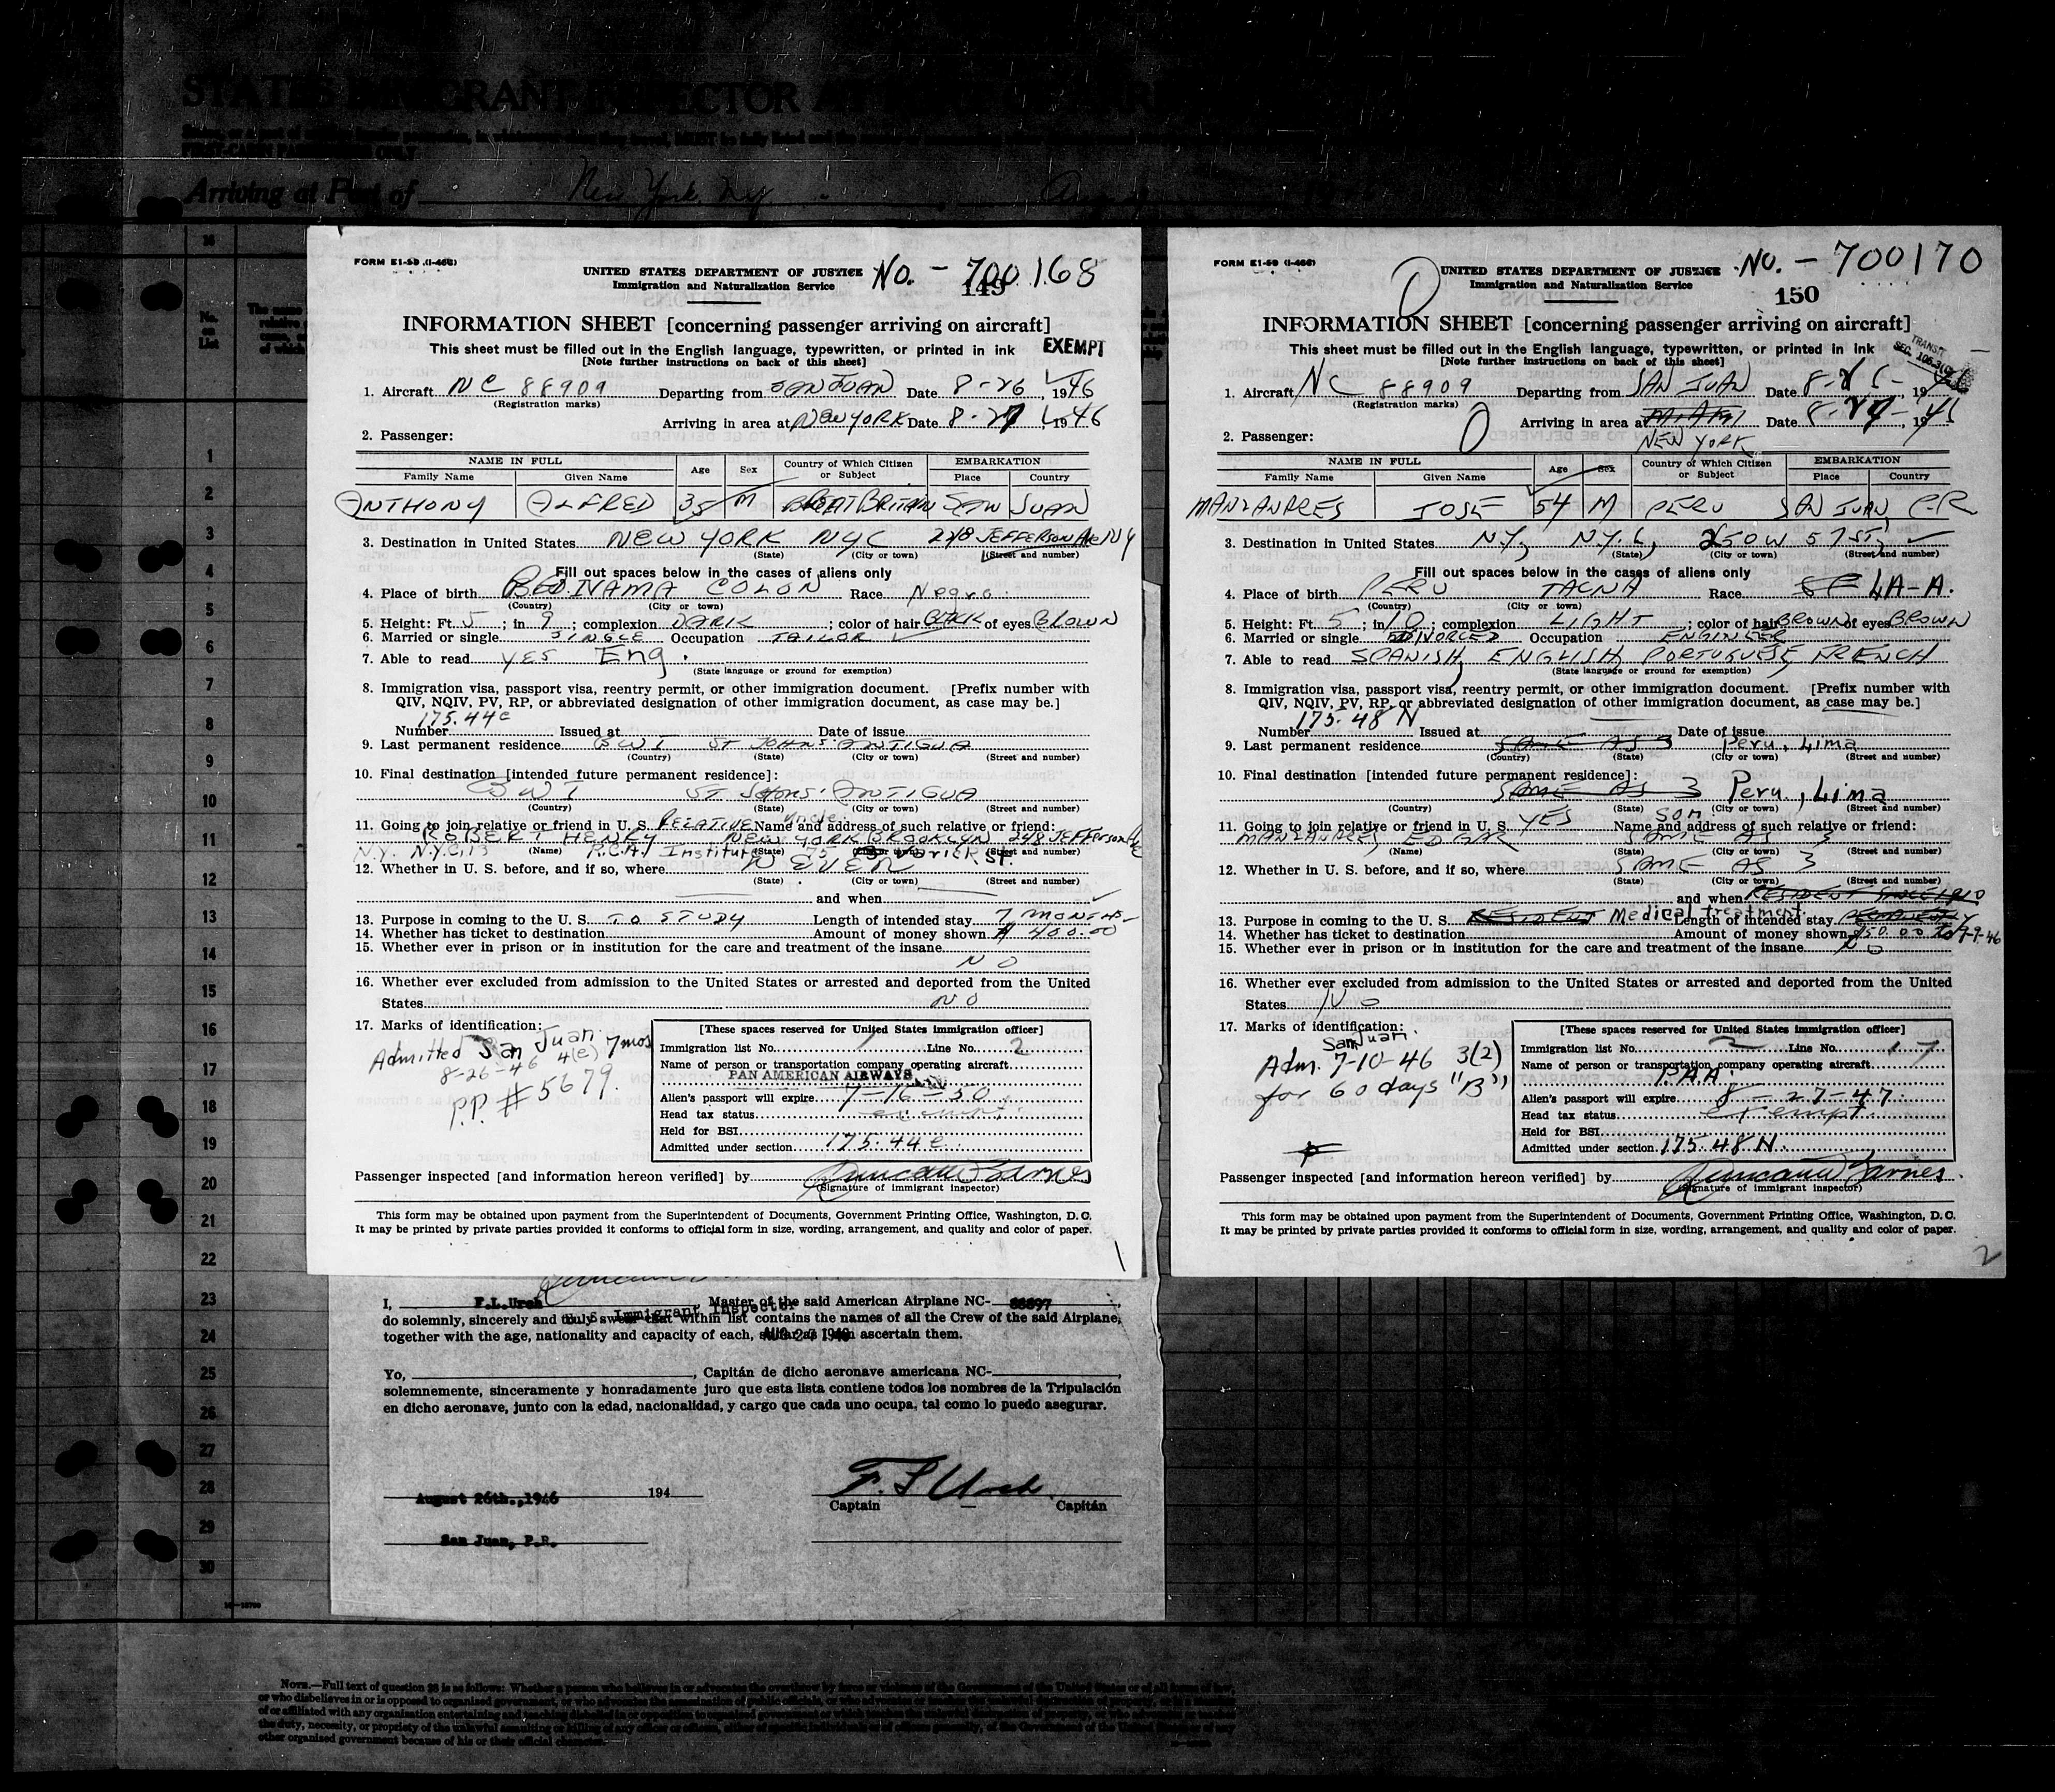 STATES IMMIGRANT INSPECTOR
Arriving at Port of New York, NY
FORM E1-59 (I-466)
UNITED STATES DEPARTMENT OF JUSTICE No. - 700168
Immigration and Naturalization Service
149
INFORMATION SHEET [concerning passenger arriving on aircraft]
This sheet must be filled out in the English language, typewritten, or printed in ink EXEMPT
[Note further instructions on back of this sheet]
1. Aircraft NC 88909 Departing from SAN JUAN Date 8-26, 1946
(Registration marks)
Arriving in area at NEW YORK Date 8-27, 1946
2. Passenger:
NAME IN FULL Age Sex Country of Which Citizen or Subject EMBARKATION
Family Name Given Name Place Country
ANTHONY ALFRED 35 M GREAT BRITAIN SAN JUAN
3. Destination in United States NEW YORK NYC 248 JEFFERSON Ave NY
(State) (City or town) (Street and number)
Fill out spaces below in the cases of aliens only
4. Place of birth PANAMA COLON Race Negro
(Country) (City or town)
5. Height: Ft. 5; in 9; complexion DARK; color of hair BLACK of eyes BROWN
6. Married or single SINGLE Occupation TAILOR
7. Able to read YES Eng.
(State language or ground for exemption)
8. Immigration visa, passport visa, reentry permit, or other immigration document. [Prefix number with
QIV, NQIV, PV, RP, or abbreviated designation of other immigration document, as case may be.]
175.44e
Number Issued at Date of issue
9. Last permanent residence BWI ST JOHNS ANTIGUA
(Country) (State) (City or town) (Street and number)
10. Final destination [intended future permanent residence]:
BWI ST JOHNS ANTIGUA
(Country) (State) (City or town) (Street and number)
Uncle
11. Going to join relative or friend in U. S. RELATIVE Name and address of such relative or friend:
HENRY NEW YORK BROOKLYN 248 JEFFERSON Ave
(Name) (State) (City or town) (Street and number)
N.Y. N.Y.C. 13 R.C.A. Institute 75 Varick St.
12. Whether in U. S. before, and if so, where NEVER
(State) (City or town) (Street and number)
and when
13. Purpose in coming to the U. S. TO STUDY Length of intended stay 7 MONTHS
14. Whether has ticket to destination Amount of money shown $ 400.00
15. Whether ever in prison or in institution for the care and treatment of the insane
NO
16. Whether ever excluded from admission to the United States or arrested and deported from the United
States NO
17. Marks of identification:
Admitted San Juan 7 mos
8-26-46 4(e)
P.P. # 5679.
[These spaces reserved for United States immigration officer]
Immigration list No. 1 Line No. 2
Name of person or transportation company operating aircraft
PAN AMERICAN AIRWAYS
Alien's passport will expire 7-16-50
Head tax status exempt
Held for BSI
Admitted under section 175.44e
Passenger inspected [and information hereon verified] by Duncan Barnes
(Signature of immigrant inspector)
This form may be obtained upon payment from the Superintendent of Documents, Government Printing Office, Washington, D. C.
It may be printed by private parties provided it conforms to official form in size, wording, arrangement, and quality and color of paper.
1
FORM E1-59 (I-466)
UNITED STATES DEPARTMENT OF JUSTICE No. - 700170
Immigration and Naturalization Service
150
INFORMATION SHEET [concerning passenger arriving on aircraft]
This sheet must be filled out in the English language, typewritten, or printed in ink
[Note further instructions on back of this sheet]
TRANSIT
1. Aircraft NC 88909 Departing from SAN JUAN Date 8-26-, 1946
(Registration marks)
Arriving in area at MIAMI Date 8-27-, 1946
NEW YORK
2. Passenger:
NAME IN FULL Age Sex Country of Which Citizen or Subject EMBARKATION
Family Name Given Name Place Country
MANZANARES JOSE 54 M PERU SAN JUAN, P.R
3. Destination in United States N.Y, N.Y.C, 250 W 57 ST,
(State) (City or town) (Street and number)
Fill out spaces below in the cases of aliens only
4. Place of birth PERU TACNA Race LA-A.
(Country) (City or town)
5. Height: Ft. 5; in 10; complexion LIGHT; color of hair BROWN of eyes BROWN
6. Married or single DIVORCED Occupation ENGINEER
7. Able to read SPANISH, ENGLISH, PORTUGUESE, FRENCH
(State language or ground for exemption)
8. Immigration visa, passport visa, reentry permit, or other immigration document. [Prefix number with
QIV, NQIV, PV, RP, or abbreviated designation of other immigration document, as case may be.]
175.48 N
Number Issued at Date of issue
9. Last permanent residence SAME AS 3 Peru, Lima
(Country) (State) (City or town) (Street and number)
10. Final destination [intended future permanent residence]:
SAME AS 3 Peru., Lima
(Country) (State) (City or town) (Street and number)
Son
11. Going to join relative or friend in U. S. YES Name and address of such relative or friend:
MANZANARES, EDGAR SAME AS 3
(Name) (State) (City or town) (Street and number)
12. Whether in U. S. before, and if so, where SAME AS 3
(State) (City or town) (Street and number)
and when RESIDENT SINCE 1910
13. Purpose in coming to the U. S. RESIDENT Medical treatment Length of intended stay PERMANENTLY
14. Whether has ticket to destination Amount of money shown $50.00 to 9-9-46
15. Whether ever in prison or in institution for the care and treatment of the insane NO
16. Whether ever excluded from admission to the United States or arrested and deported from the United
States NO
17. Marks of identification:
San Juan
Adm. 7-10-46 3(2)
for 60 days "B"
[These spaces reserved for United States immigration officer]
Immigration list No. 2 Line No. 17
Name of person or transportation company operating aircraft
P.A.A.
Alien's passport will expire 8-27-47
Head tax status exempt
Held for BSI
Admitted under section 175.48N
Passenger inspected [and information hereon verified] by Duncan Barnes
(Signature of immigrant inspector)
This form may be obtained upon payment from the Superintendent of Documents, Government Printing Office, Washington, D. C.
It may be printed by private parties provided it conforms to official form in size, wording, arrangement, and quality and color of paper.
2
I, F.L.Urch Master of the said American Airplane NC- 88897,
U. S. Immigrant Inspector
do solemnly, sincerely and truly swear that within list contains the names of all the Crew of the said Airplane,
together with the age, nationality and capacity of each, so far as I can ascertain them.
AUG 27 1946
Yo, , Capitán de dicho aeronave americana NC- ,
solemnemente, sinceramente y honradamente juro que esta lista contiene todos los nombres de la Tripulación
en dicho aeronave, junto con la edad, nacionalidad, y cargo que cada uno ocupa, tal como lo puedo asegurar.
August 26th.,1946 194
F. L Urch
Captain Capitán
San Juan, P.R.
No. on List
1
2
3
4
5
6
7
8
9
10
11
12
13
14
15
16
17
18
19
20
21
22
23
24
25
26
27
28
29
30
NOTE.—Full text of question 28 is as follows: Whether a person who believes in or advocates the overthrow by force or violence of the Government of the United States or of all forms of law,
or who disbelieves in or is opposed to organized government, or who advocates the assassination of public officials, or who advocates